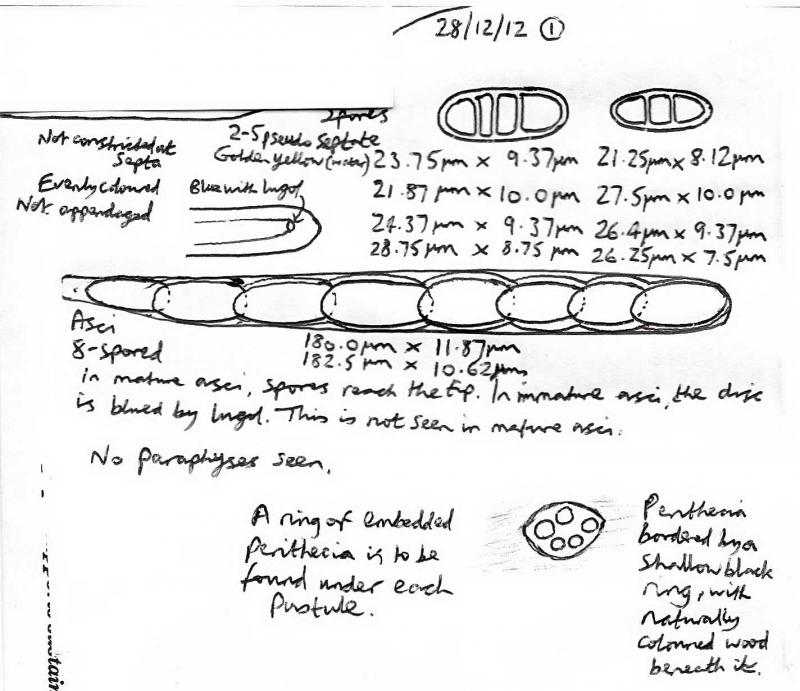 28/12/12 ①
Spores
Not constricted at
Septa
2-5 pseudoseptate
Golden yellow (water)
Evenly coloured
Not appendaged
Blue with Lugol
23.75µm x 9.37µm 21.25µm x 8.12µm
21.87µm x 10.0µm 27.5µm x 10.0µm
24.37µm x 9.37µm 26.4µm x 9.37µm
28.75µm x 8.75µm 26.25µm x 7.5µm
Asci
8-spored
180.0µm x 11.87µm
182.5µm x 10.62µm
in mature asci, spores reach the tip. In immature asci, the disc
is blued by Lugol. This is not seen in mature asci.
No paraphyses seen.
A ring of embedded
Perithecia is to be
found under each
Pustule.
Perithecia
bordered by a
Shallow black
ring, with
naturally
coloured wood
beneath it.